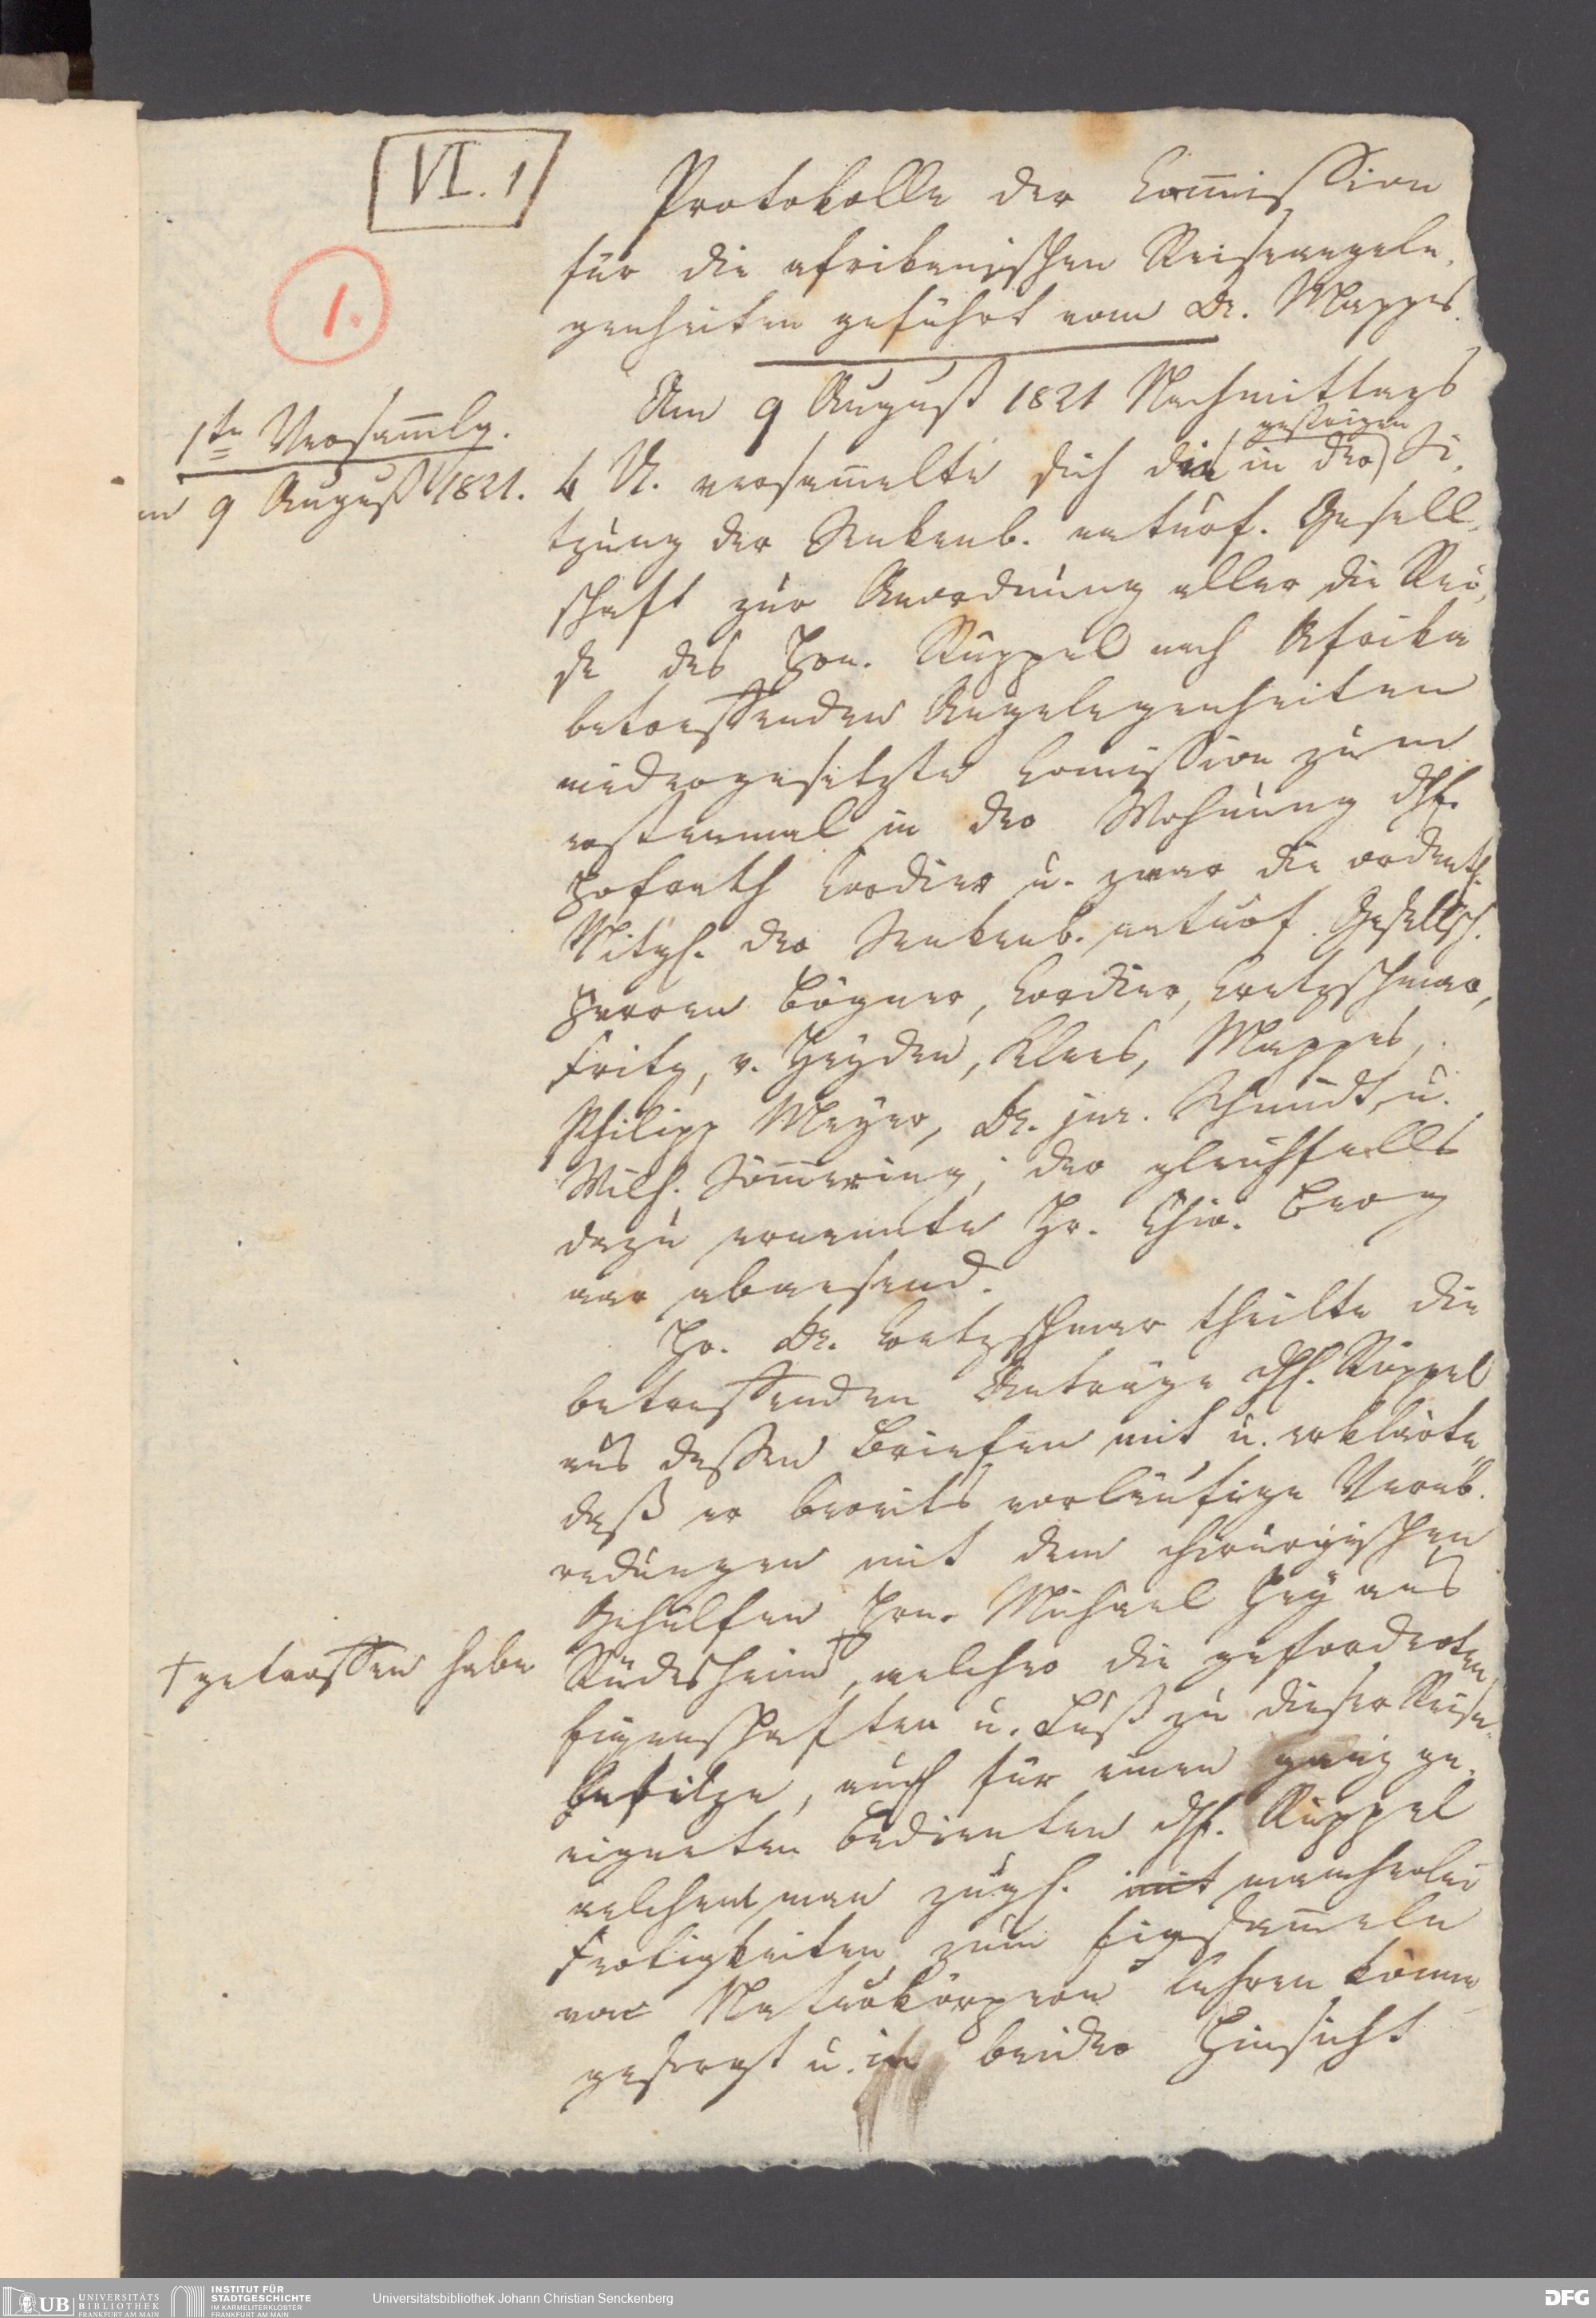 VI. 1
1.
Protokolle der Com̅ission
für die afrikanischen Reiseangele-
genheiten geführt vom Dr. Mappes.
1te Versam̅lg.
9 August 1821.
Am 9 August 1821 Nachmittags
4 U. versam̅elte sich die in der gestrigen Si-
tzung der Senkenb. naturf. Gesell-
schaft zur Anordnung aller die Rei-
se des Hrn. Rüppel nach Afrika
betreffenden Angelegenheiten
niedergesetzte Com̅ission zum
erstenmal in der Wohnung dH.
Hofrath Cordier u. zwar die ordentl.
Mitgl. der Senkenb. naturf. Gesellsch.
Herren Bögner, Cordier, Cretzschmar,
Fritz, v. Heyden, Klees, Mappes,
Philipp Meyer, Dr. jur. Schmidt, u.
Wilh. Söm̅ering; der gleichfalls
dazu ernannte Hr. Chir. Berg
war abwesend.
Hr. Dr. Cretzschmar theilte die
betreffenden Anträge dH. Rüppel
aus dessen Briefen mit u. erklärte,
daß er bereits vorläufige Verab-
redungen mit dem chirurgischen
Gehülfen Hrn. Michael Hey aus
† getroffen habe
Rüdesheim †, welcher die geforderten
Eigenschaften u. Lust zu dieser Reise
besitze, auch für einen ganz ge-
eigneten Bedienten dH. Rüppel
welchem man zugl. mit mancherlei
Fertigkeiten zum Einsam̅eln
von Naturkörpern lehren könne
gesorgt u. in beider Hinsicht
UB UNIVERSITÄTS
BIBLIOTHEK
FRANKFURT AM MAIN
INSTITUT FÜR
STADTGESCHICHTE
IM KARMELITERKLOSTER
FRANKFURT AM MAIN
Universitätsbibliothek Johann Christian Senckenberg
DFG